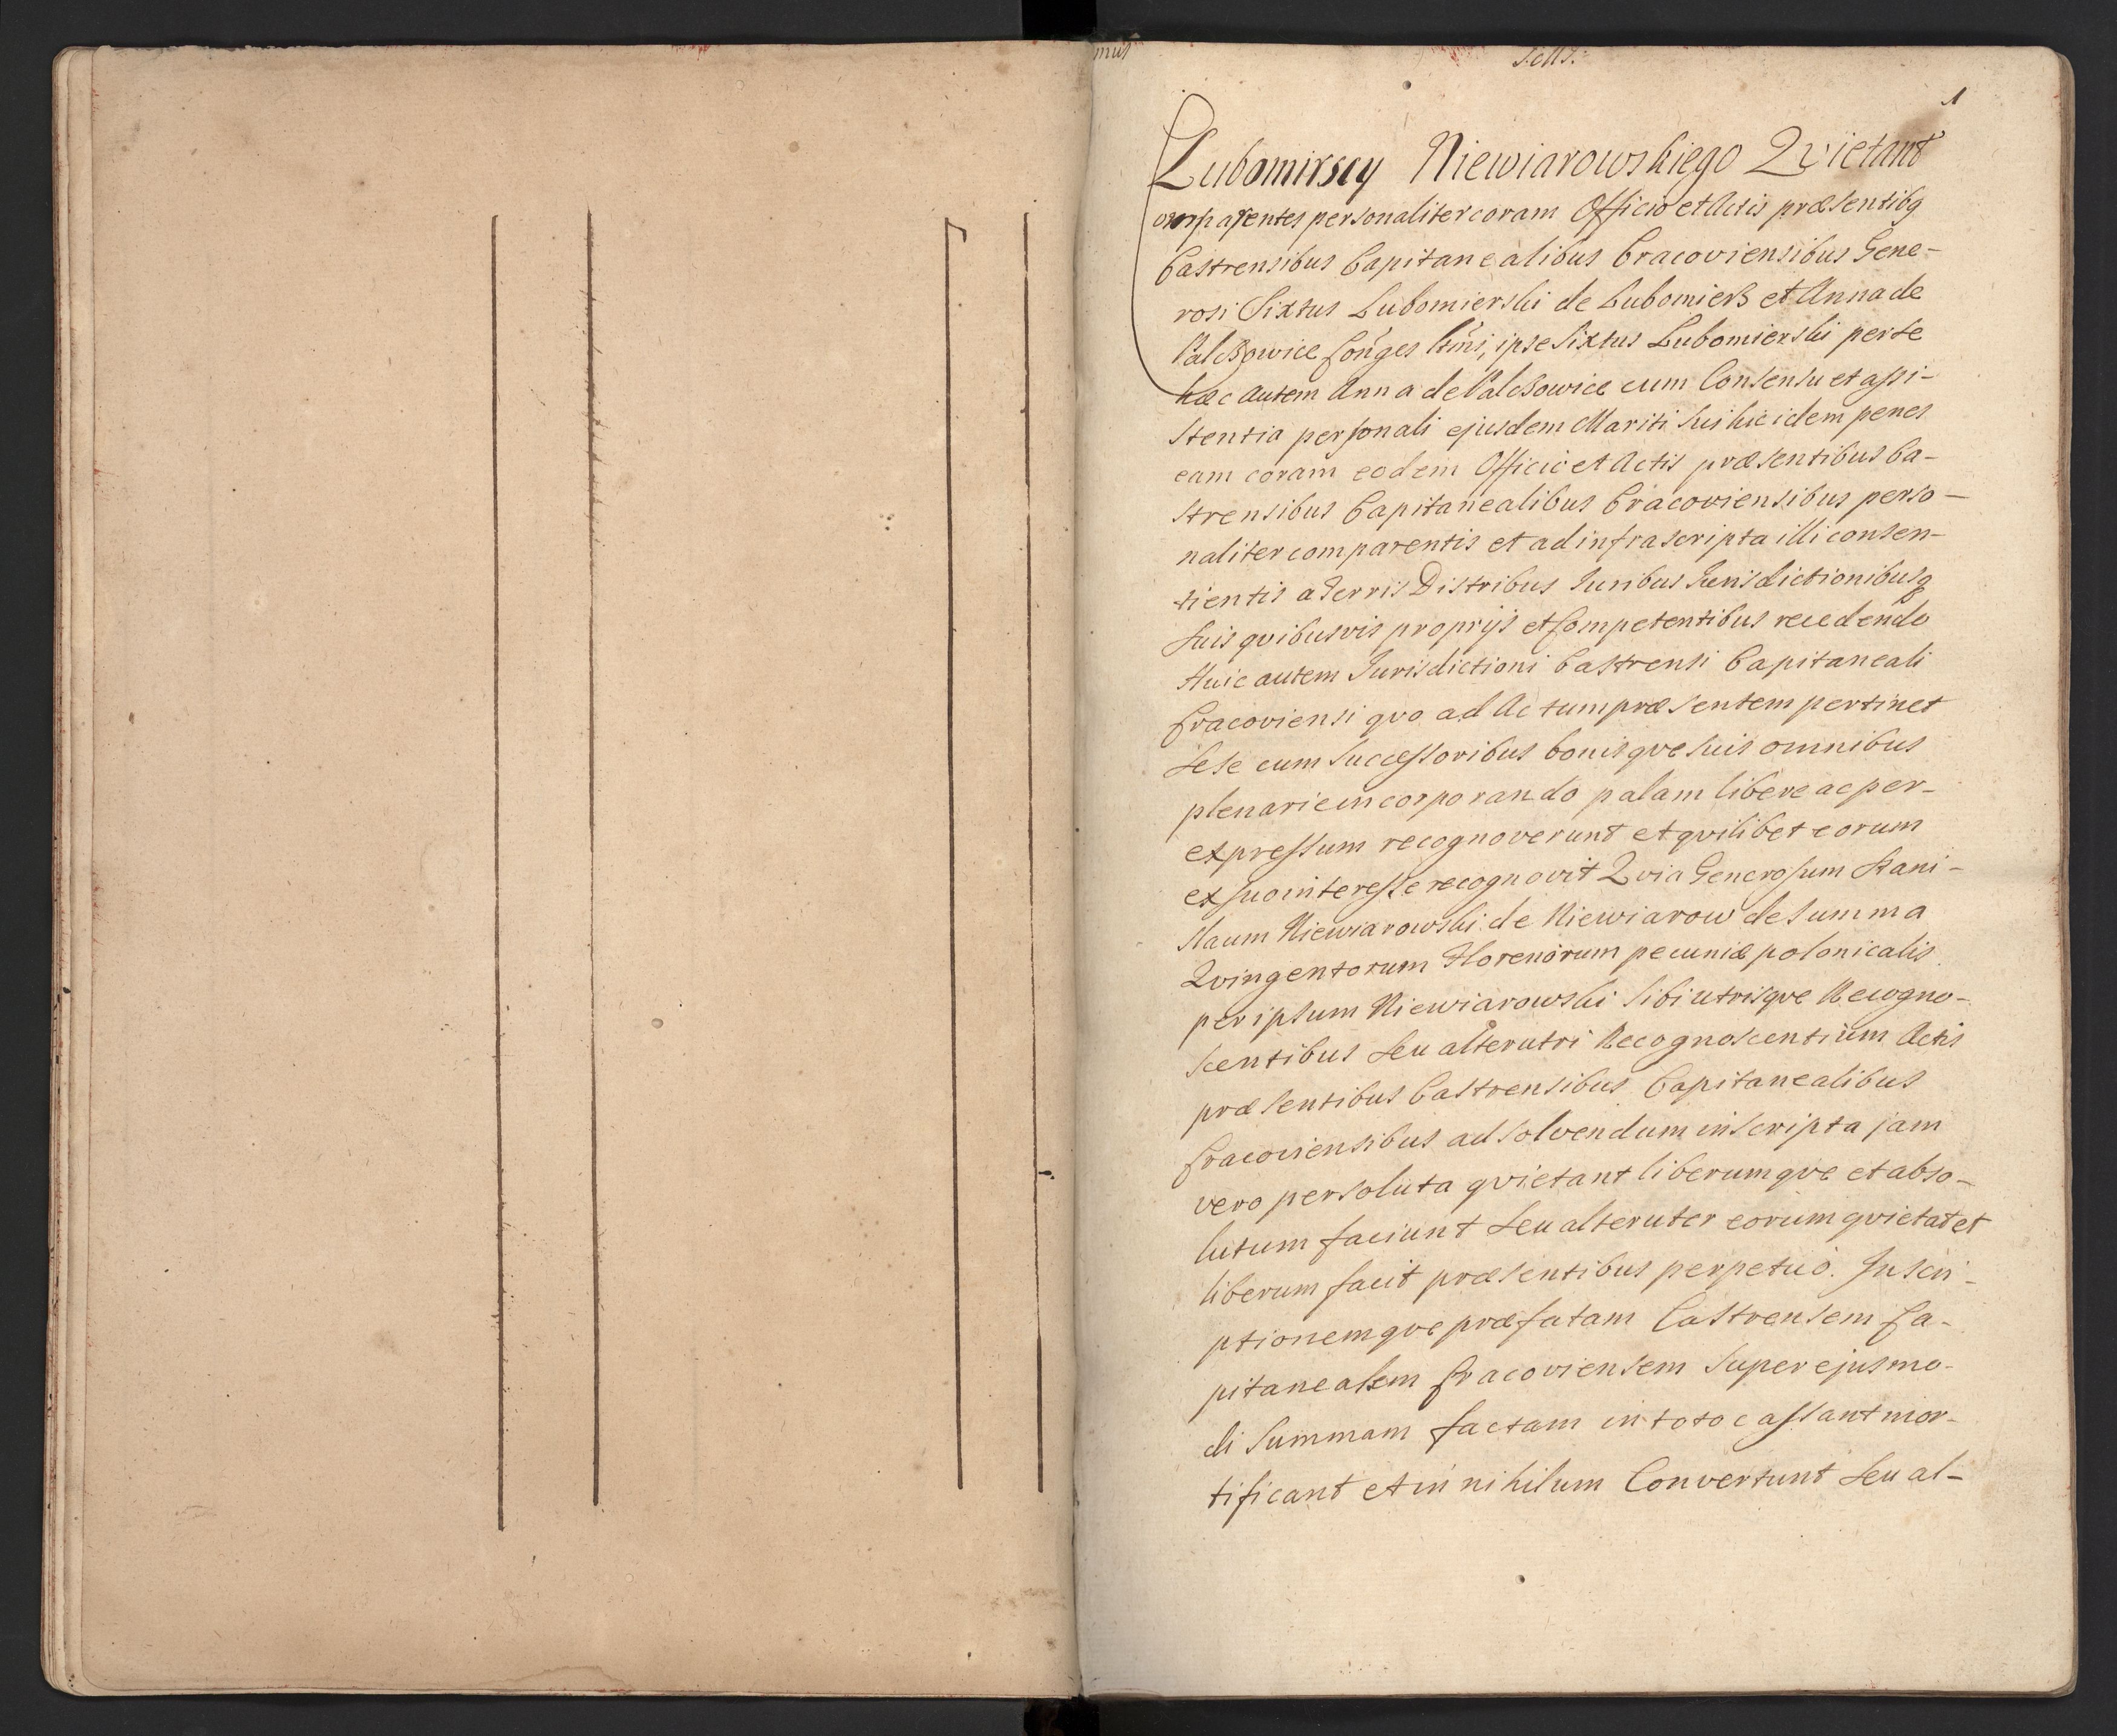 mus
1
Lubomirscy Niewiarowskiego Qvietant
omparentes personaliter coram Officio et Actis præsentibq
Castrensibus Capitanealibus Cracoviensibus Gene-
rosi Sixtus Lubomierski de Lubomierz et Anna de
ipse Sixtus Lubomierski per se
hæc autem Anna de cum Consensu et assi-
stentia personali ejusdem Mariti sui hic idem penes
eam coram eodem Officio et Actis præsentibus Ca-
strensibus Capitanealibus Cracoviensibus perso-
naliter comparentis et ad infrascripta illi consen-
tientis a Terris Distribus Iuribus Iurisdictionibusq
suis qvibusvis proprijs et Competentibus recedendo
Huic autem Iurisdictioni Castrensi Capitaneali
Cracoviensi qvo ad Actum præsentem pertinet
sese cum Successoribus bonisqve suis omnibus
plenarie incorporando palam libere ac per-
expressum recognoverunt et qvilibet eorum
ex suo interesse recognovit Qvia Generosum Stani-
slaum Niewiarowski de Niewiarow de Summa
Qvingentorum Florenorum pecuniæ polonicalis
per ipsum Niewiarowski sibi utrisqve Recogno-
scentibus seu alterutri Recognoscentium Actis
præsentibus Castrensibus Capitanealibus
Cracoviensibus ad solvendum inscripta jam
vero persoluta qvietant liberumqve et abso-
lutum faciunt seu alteruter eorum qvietat et
liberum facit præsentibus perpetuo. Inscri-
ptionemqve præfatam Castrensem Ca-
pitanealem Cracoviensem super ejusmo-
di Summam factam in toto cassant mor-
tificant et in nihilum Convertunt seu al-